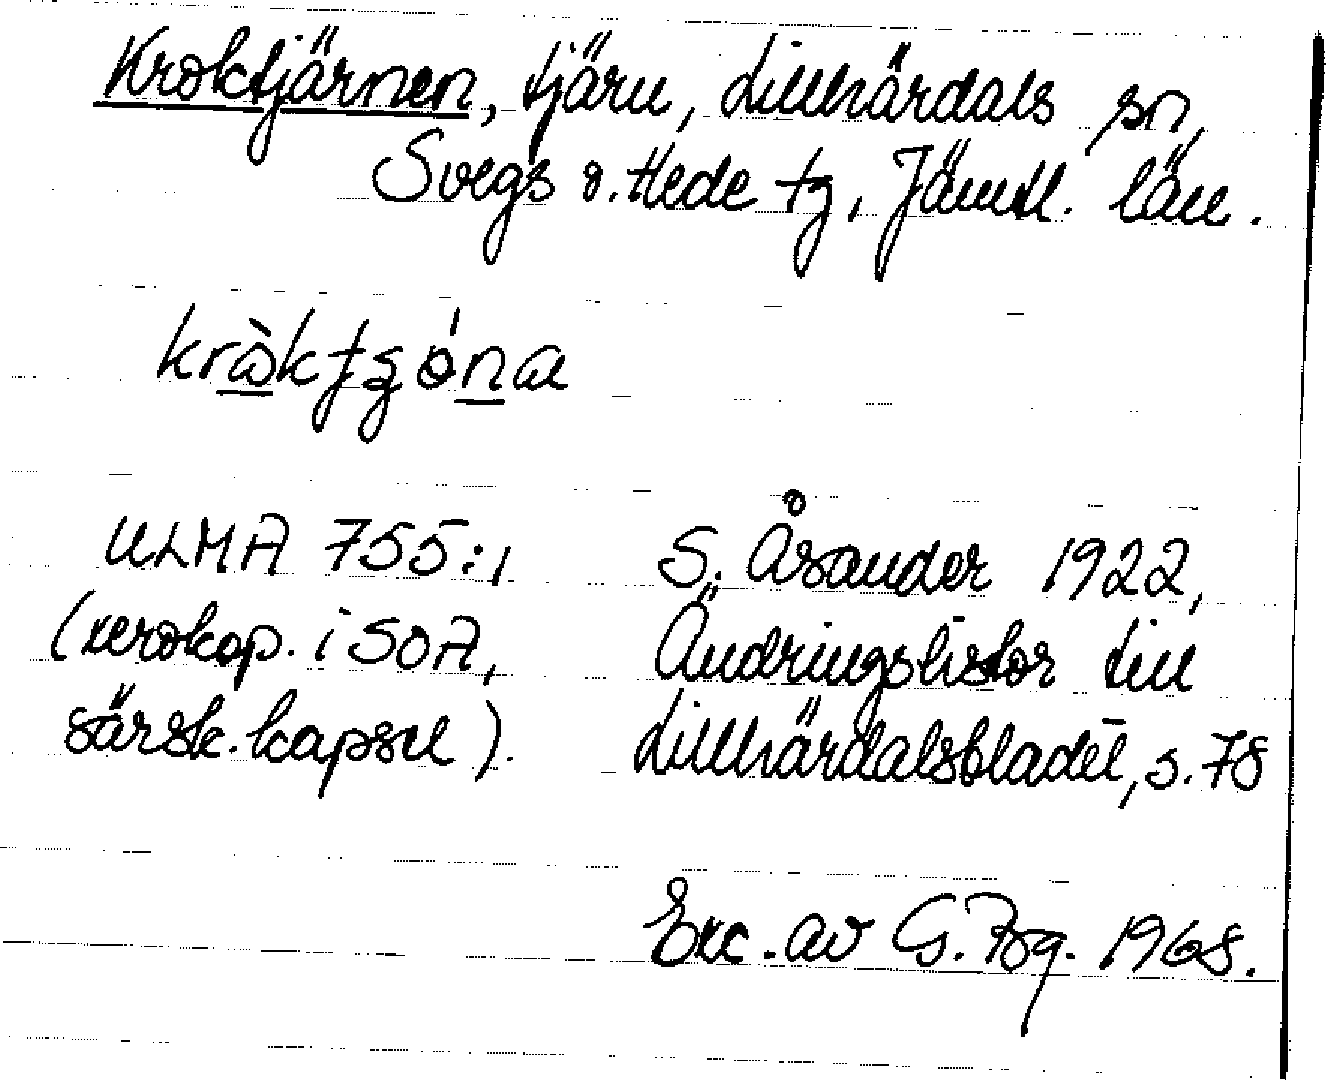 Kroktjärnen, tjärn, Lillhärdals sn,
Svegs o. Hede tg, Jämtl. län.
ULMA 755:1
(xerokop. i SOA,
särsk. kapsel).
S. Åsander 1922,
Ändringslistor till
Lillhärdalsbladet, s. 78
Exc. av G. Bg. 1968.